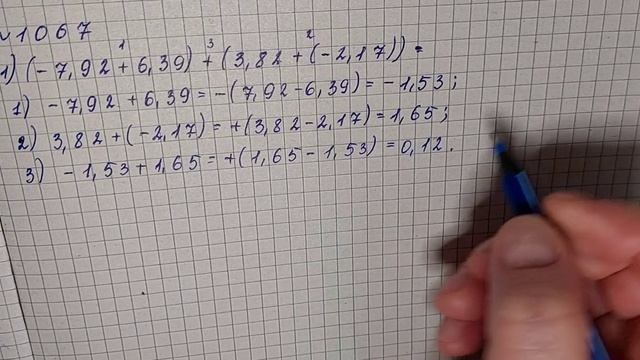 №1067
1) (-7,92 + 6,39) + (3,82 + (-2,17)) =
1) -7,92 + 6,39 = -(7,92 - 6,39) = -1,53;
2) 3,82 + (-2,17) = +(3,82 - 2,17) = 1,65;
3) -1,53 + 1,65 = +(1,65 - 1,53) = 0,12.